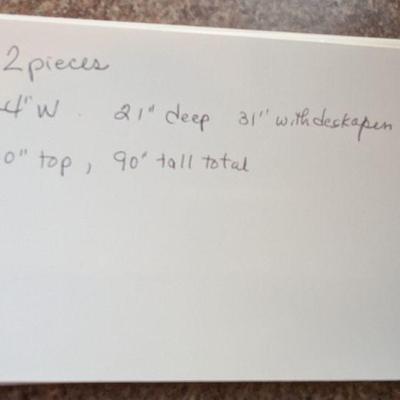 2 pieces
4" W. 21" deep 31" with desk open
0" top, 90" tall total